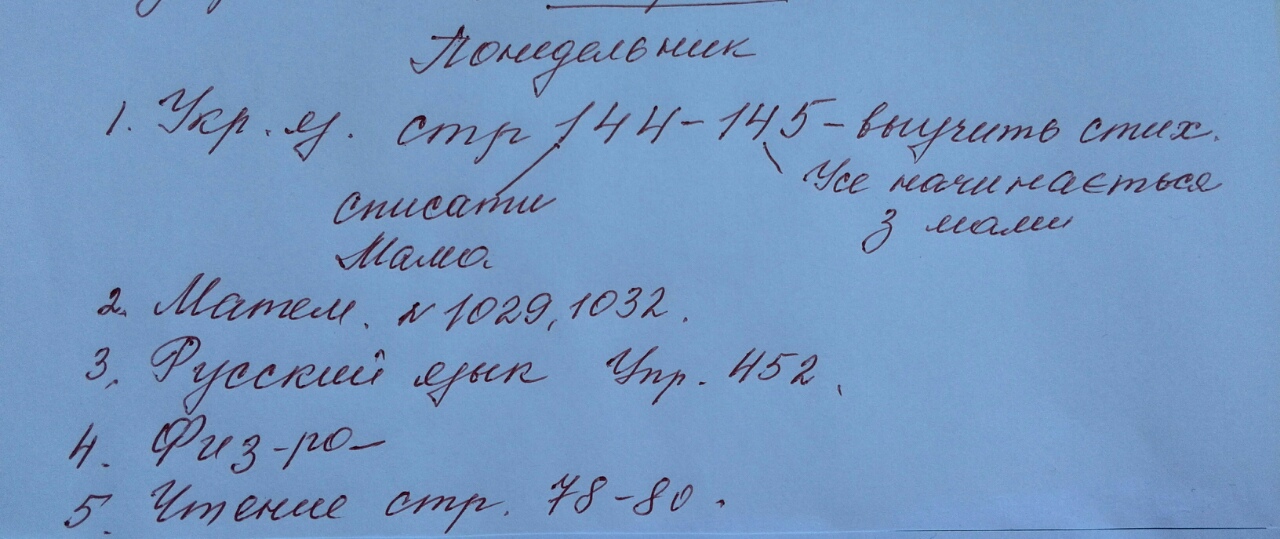 Понидельник
1. Укр. яз. стр 144-145 - выучить стих.
списати
Мама
Усе начинається
з мами
2. Матем. № 1029, 1032.
3. Русский язык Упр. 452.
4. Физ-ро-
5. Чтение стр. 78-80.